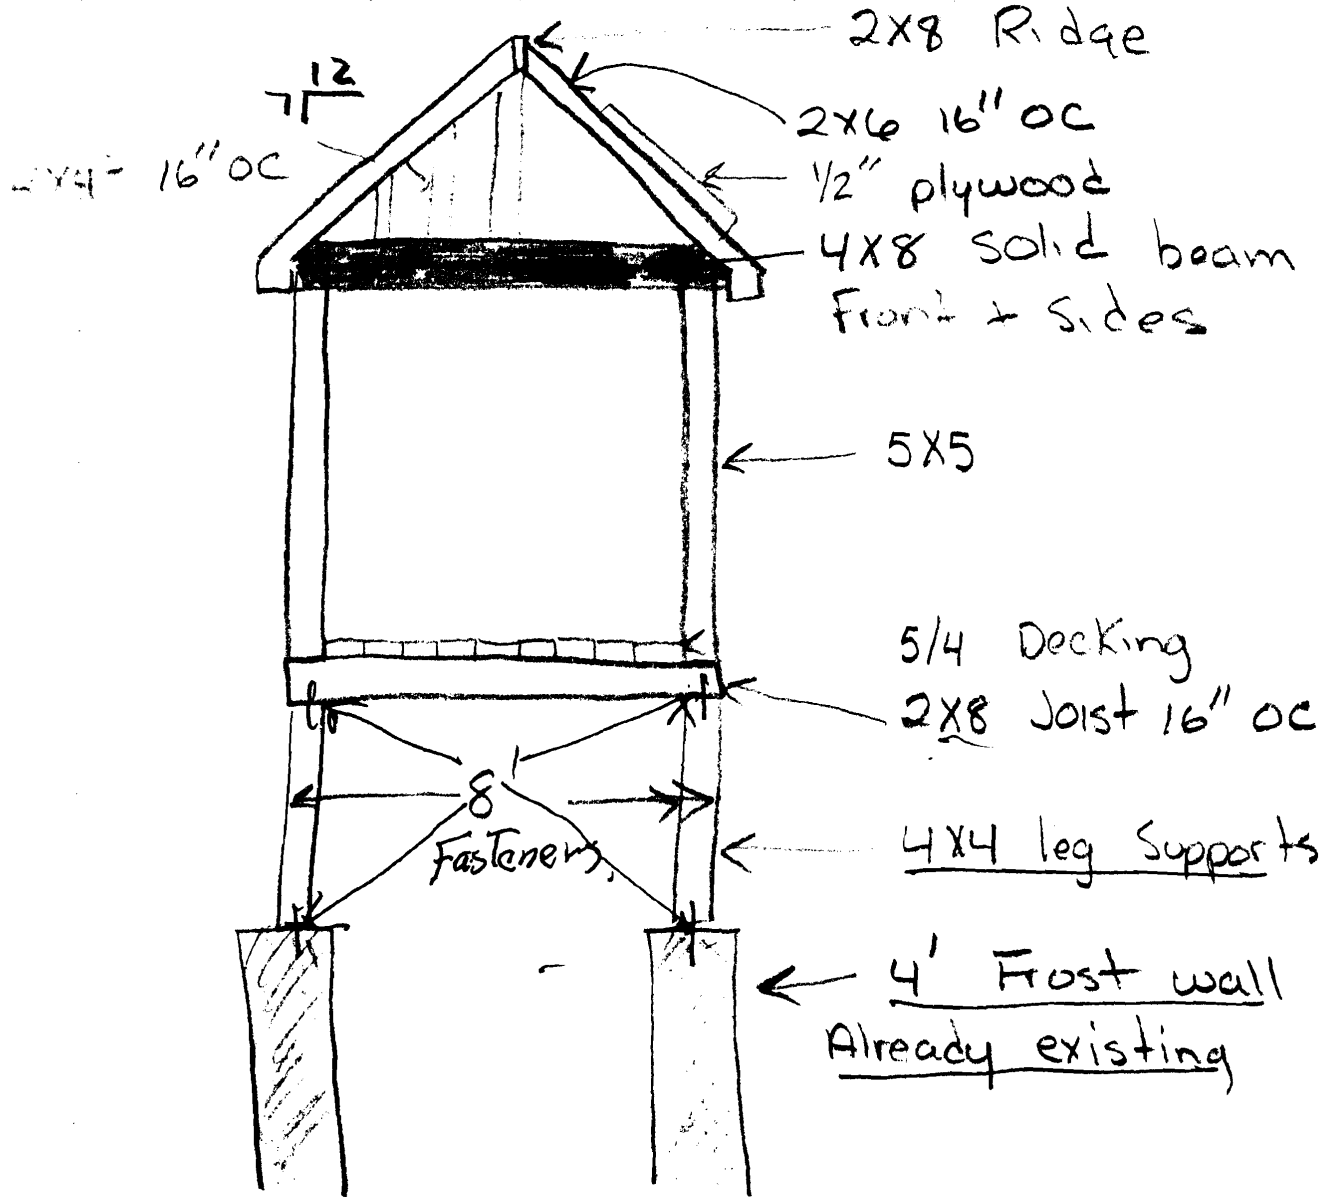 2X8 Ridge
12
7
2X6 16" OC
2X4- 16" OC
1/2" plywood
4X8 Solid beam
Front + Sides
5X5
5/4 Decking
2X8 Joist 16" OC
8'
Fasteners
4X4 leg Supports
4' Frost wall
Already existing